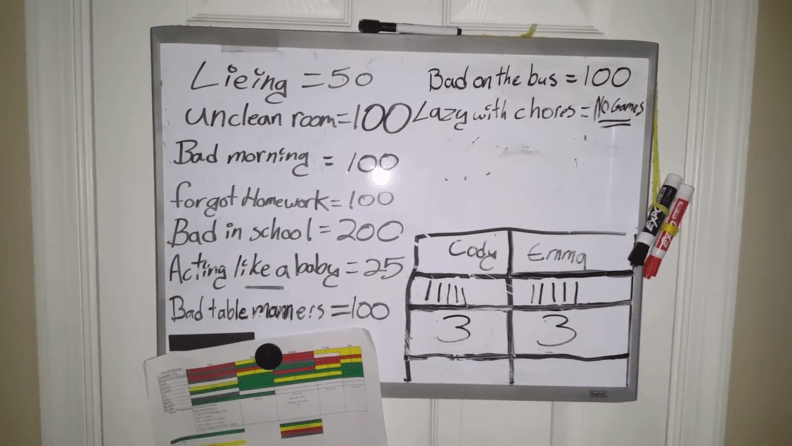 Lieing = 50
unclean room = 100
Bad morning = 100
forgot Homework = 100
Bad in school = 200
Acting like a baby = 25
Bad table manners = 100
Bad on the bus = 100
Lazy with chores = No Games
Cody Emma
3 3
EXPO
EXPO